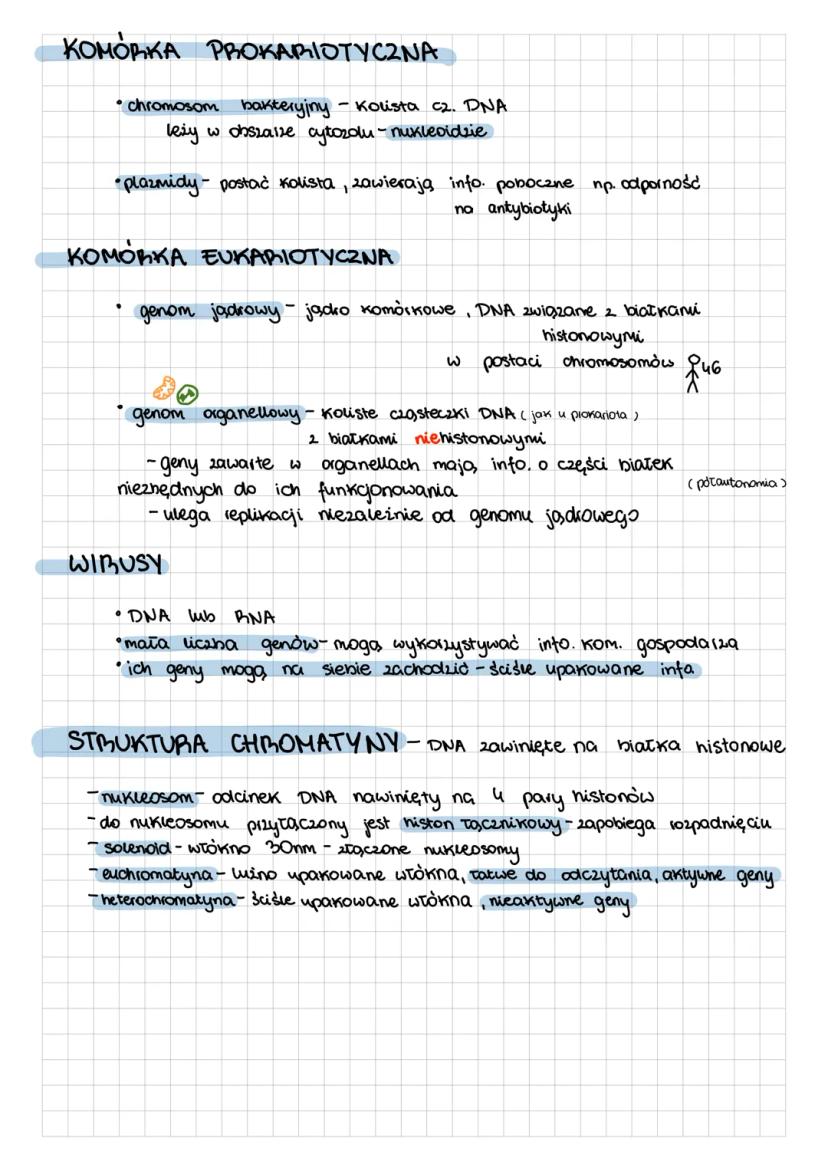 KOMÓRKA PROKARIOTYCZNA
• chromosom bakteryjny - kolista cz. DNA
leży w obszarze cytozolu - nukleoidzie
• plazmidy - postać kolista, zawierają info. poboczne np. odporność
na antybiotyki
KOMÓRKA EUKARIOTYCZNA
• genom jądrowy - jądro komórkowe, DNA związane z białkami
histonowymi
w postaci chromosomów 46
• genom organellowy - koliste cząsteczki DNA (jak u prokariota)
z białkami niehistonowymi
- geny zawarte w organellach mają info. o części białek
niezbędnych do ich funkcjonowania (półautonomia)
- ulega replikacji niezależnie od genomu jądrowego
WIRUSY
• DNA lub RNA
• mała liczba genów - mogą wykorzystywać info. kom. gospodarza
• ich geny mogą na siebie zachodzić - ściśle upakowane info
STRUKTURA CHROMATYNY - DNA zawinięte na białka histonowe
- nukleosom - odcinek DNA nawinięty na 4 pary histonów
- do nukleosomu przyłączony jest histon łącznikowy - zapobiega rozpadnięciu
- solenoid - włókno 30nm - złączone nukleosomy
- euchromatyna - luźno upakowane włókna, łatwe do odczytania, aktywne geny
- heterochromatyna - ściśle upakowane włókna, nieaktywne geny